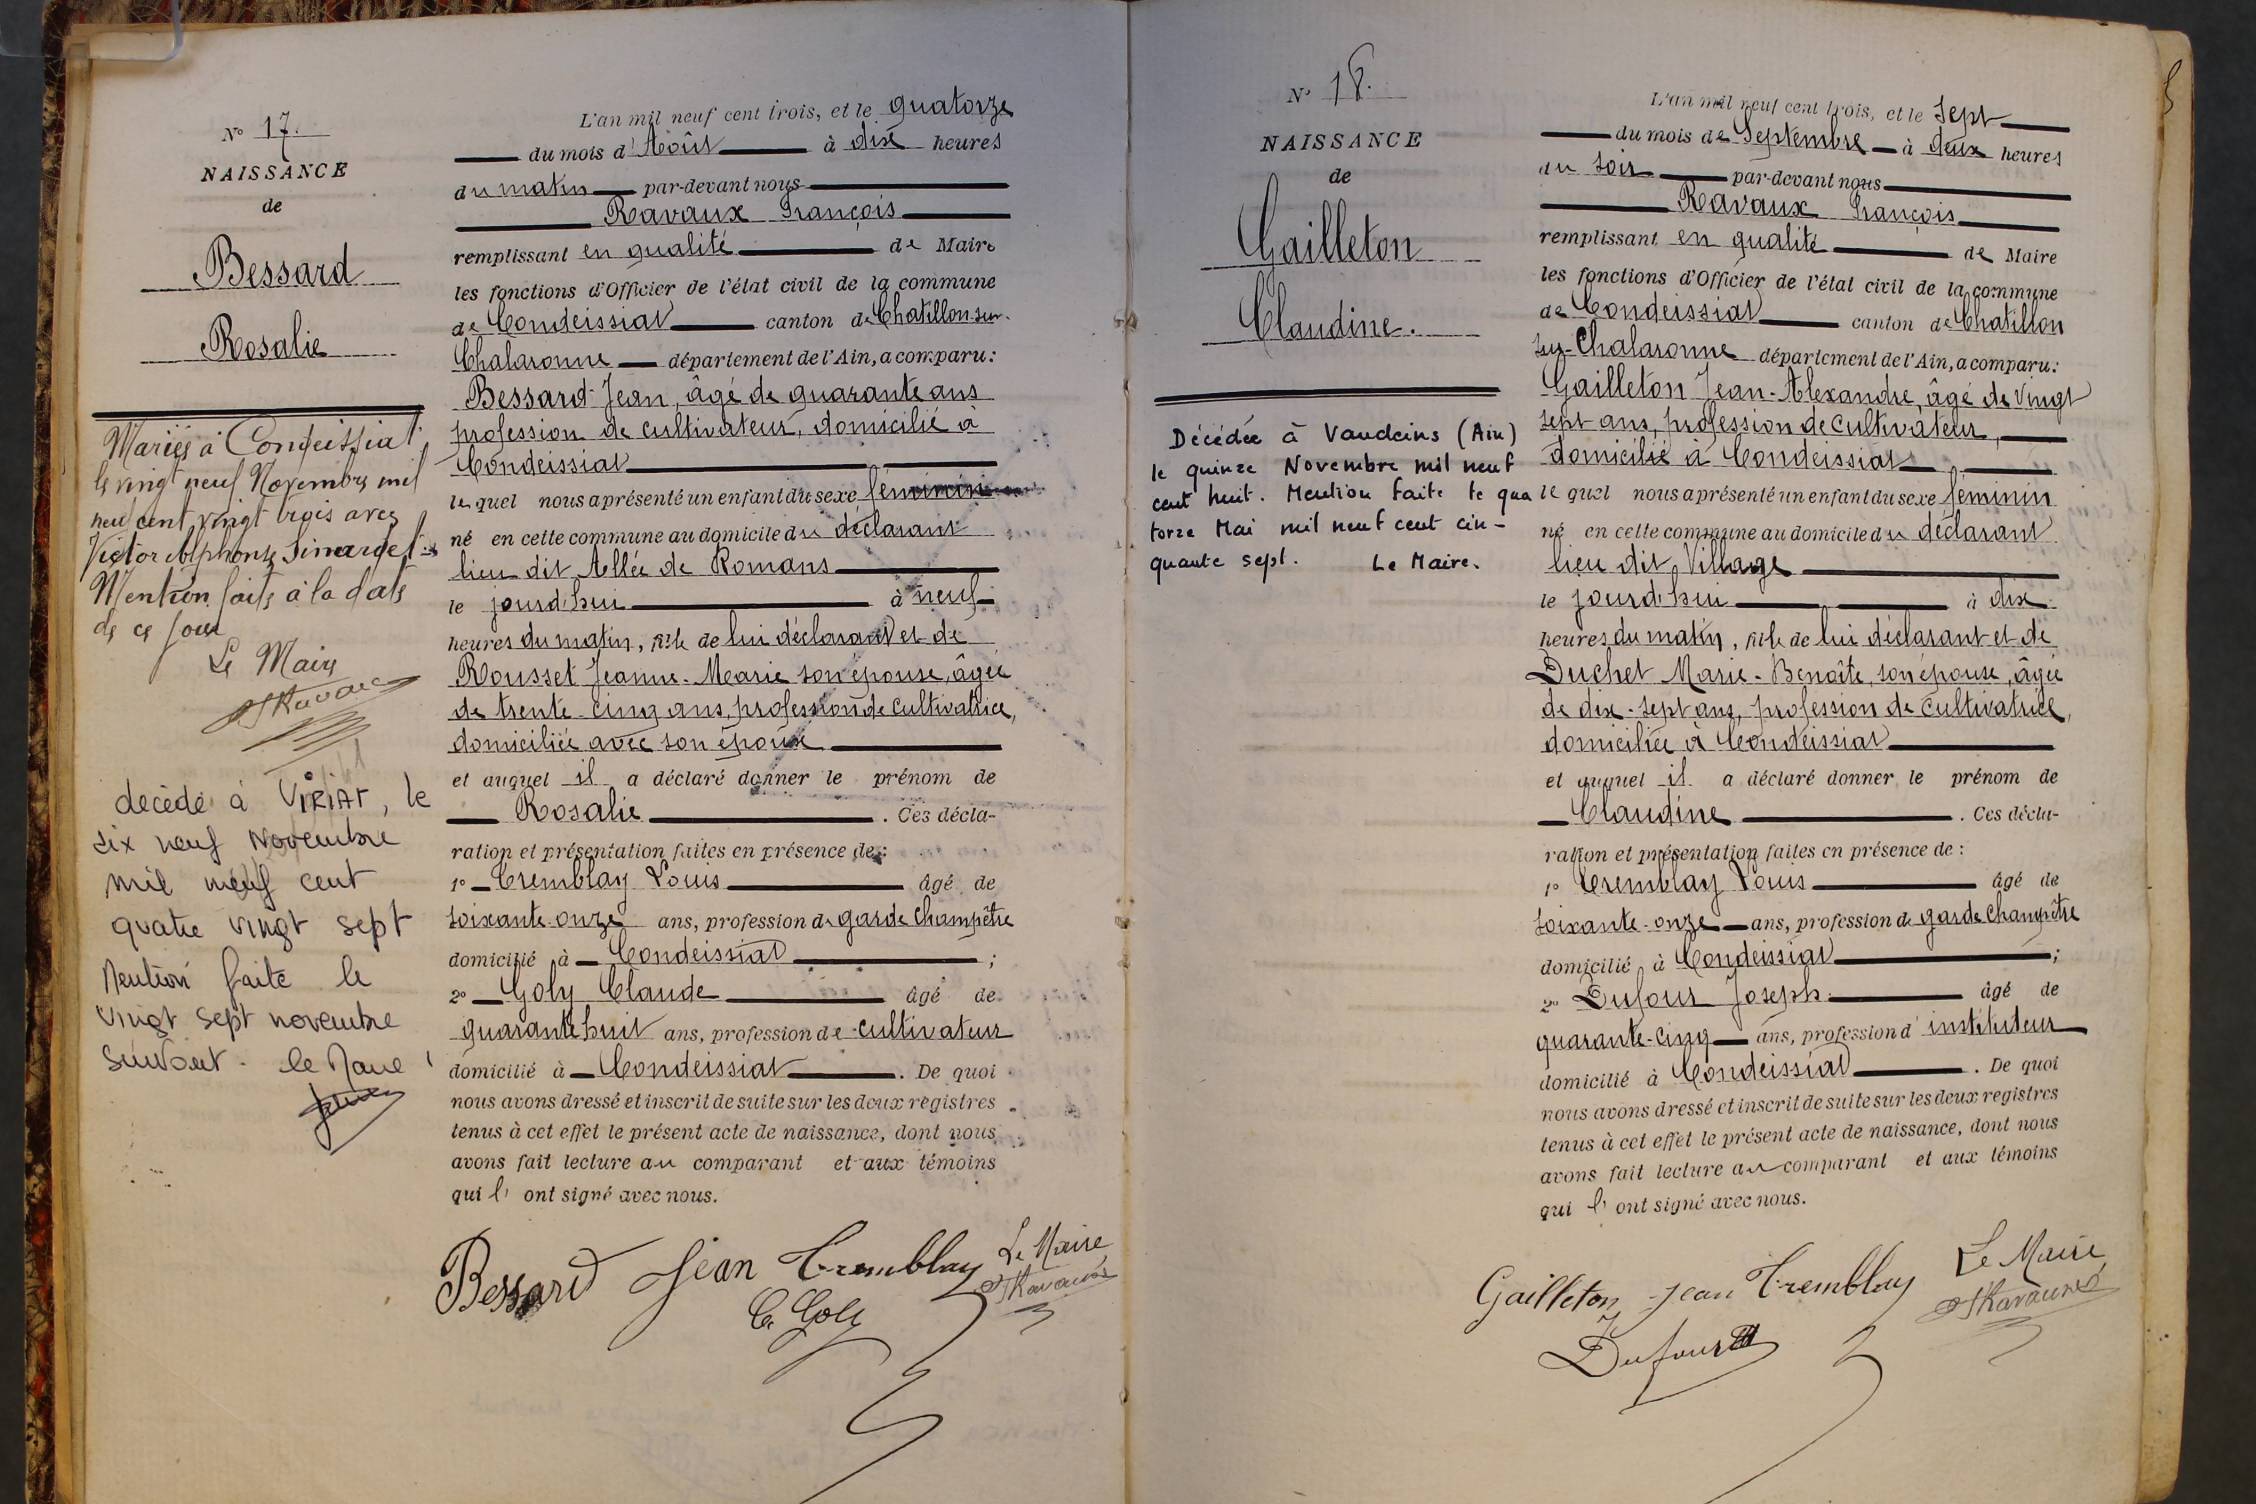 N° 17.
NAISSANCE
de
Bessard
Rosalie
Mariée à Condeissiat
le vingt neuf Novembre mil
neuf cent vingt trois avec
Victor Alphonse
Mention faite à la date
de ce jour
Le Maire
décédé à VIRIAT, le
dix neuf Novembre
mil neuf cent
quatre vingt sept
Mention faite le
vingt sept novembre
suivant. le Maire
L'an mil neuf cent trois, et le quatorze
du mois d'Août à dix heures
du matin par-devant nous
Ravaux François
remplissant en qualité de Maire
les fonctions d'Officier de l'état civil de la commune
de Condeissiat canton de Chatillon-sur-
Chalaronne département de l'Ain, a comparu:
Bessard Jean, âgé de quarante ans
profession de cultivateur, domicilié à
Condeissiat
lequel nous a présenté un enfant du sexe féminin
né en cette commune au domicile du déclarant
lieu dit Allée de Romans
le jourd'hui à neuf
heures du matin, fille de lui déclarant et de
Rousset Jeanne-Marie son épouse, âgée
de trente-cinq ans, profession de cultivatrice,
domiciliée avec son époux
et auquel il a déclaré donner le prénom de
Rosalie. Ces décla-
ration et présentation faites en présence de:
1° Tremblay Louis âgé de
soixante-onze ans, profession de garde champêtre
domicilié à Condeissiat;
2° Goly Claude âgé de
quarante huit ans, profession de cultivateur
domicilié à Condeissiat. De quoi
nous avons dressé et inscrit de suite sur les deux registres
tenus à cet effet le présent acte de naissance, dont nous
avons fait lecture au comparant et aux témoins
qui l'ont signé avec nous.
Bessard Jean Tremblay Le Maire
C. Goly Ravaux
N° 18.
NAISSANCE
de
Gailleton
Claudine.
Décédée à Vandeins (Ain)
le quinze Novembre mil neuf
cent huit. Mention faite le qua
torze Mai mil neuf cent cin-
quante sept. Le Maire.
L'an mil neuf cent trois, et le sept
du mois de Septembre à deux heures
du soir par-devant nous
Ravaux François
remplissant en qualité de Maire
les fonctions d'Officier de l'état civil de la commune
de Condeissiat canton de Chatillon
sur-Chalaronne département de l'Ain, a comparu:
Gailleton Jean-Alexandre, âgé de vingt
sept ans, profession de cultivateur,
domicilié à Condeissiat
lequel nous a présenté un enfant du sexe féminin
né en cette commune au domicile du déclarant
lieu dit Village
le jourd'hui à dix
heures du matin, fille de lui déclarant et de
Duchet Marie-Benoîte, son épouse, âgée
de dix-sept ans, profession de cultivatrice,
domiciliée à Condeissiat
et auquel il a déclaré donner le prénom de
Claudine. Ces décla-
ration et présentation faites en présence de:
1° Tremblay Louis âgé de
soixante-onze ans, profession de garde champêtre
domicilié à Condeissiat;
2° Dufour Joseph âgé de
quarante-cinq ans, profession d'instituteur
domicilié à Condeissiat. De quoi
nous avons dressé et inscrit de suite sur les deux registres
tenus à cet effet le présent acte de naissance, dont nous
avons fait lecture au comparant et aux témoins
qui l'ont signé avec nous.
Gailleton Jean Tremblay Le Maire
Dufour Ravaux